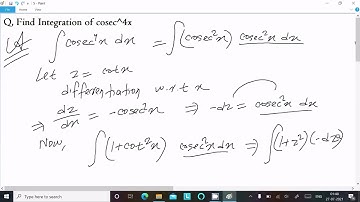 Q, Find Integration of cosec^4x
∫ cosec⁴x dx = ∫(cosec²x) cosec²x dx
Let z = cotx
differentiation w.r.t x
⇒ dz/dx = -cosec²x ⇒ -dz = cosec²x dx
Now, ∫(1+cot²x) cosec²x dx ⇒ ∫(1+z²)(-dz)